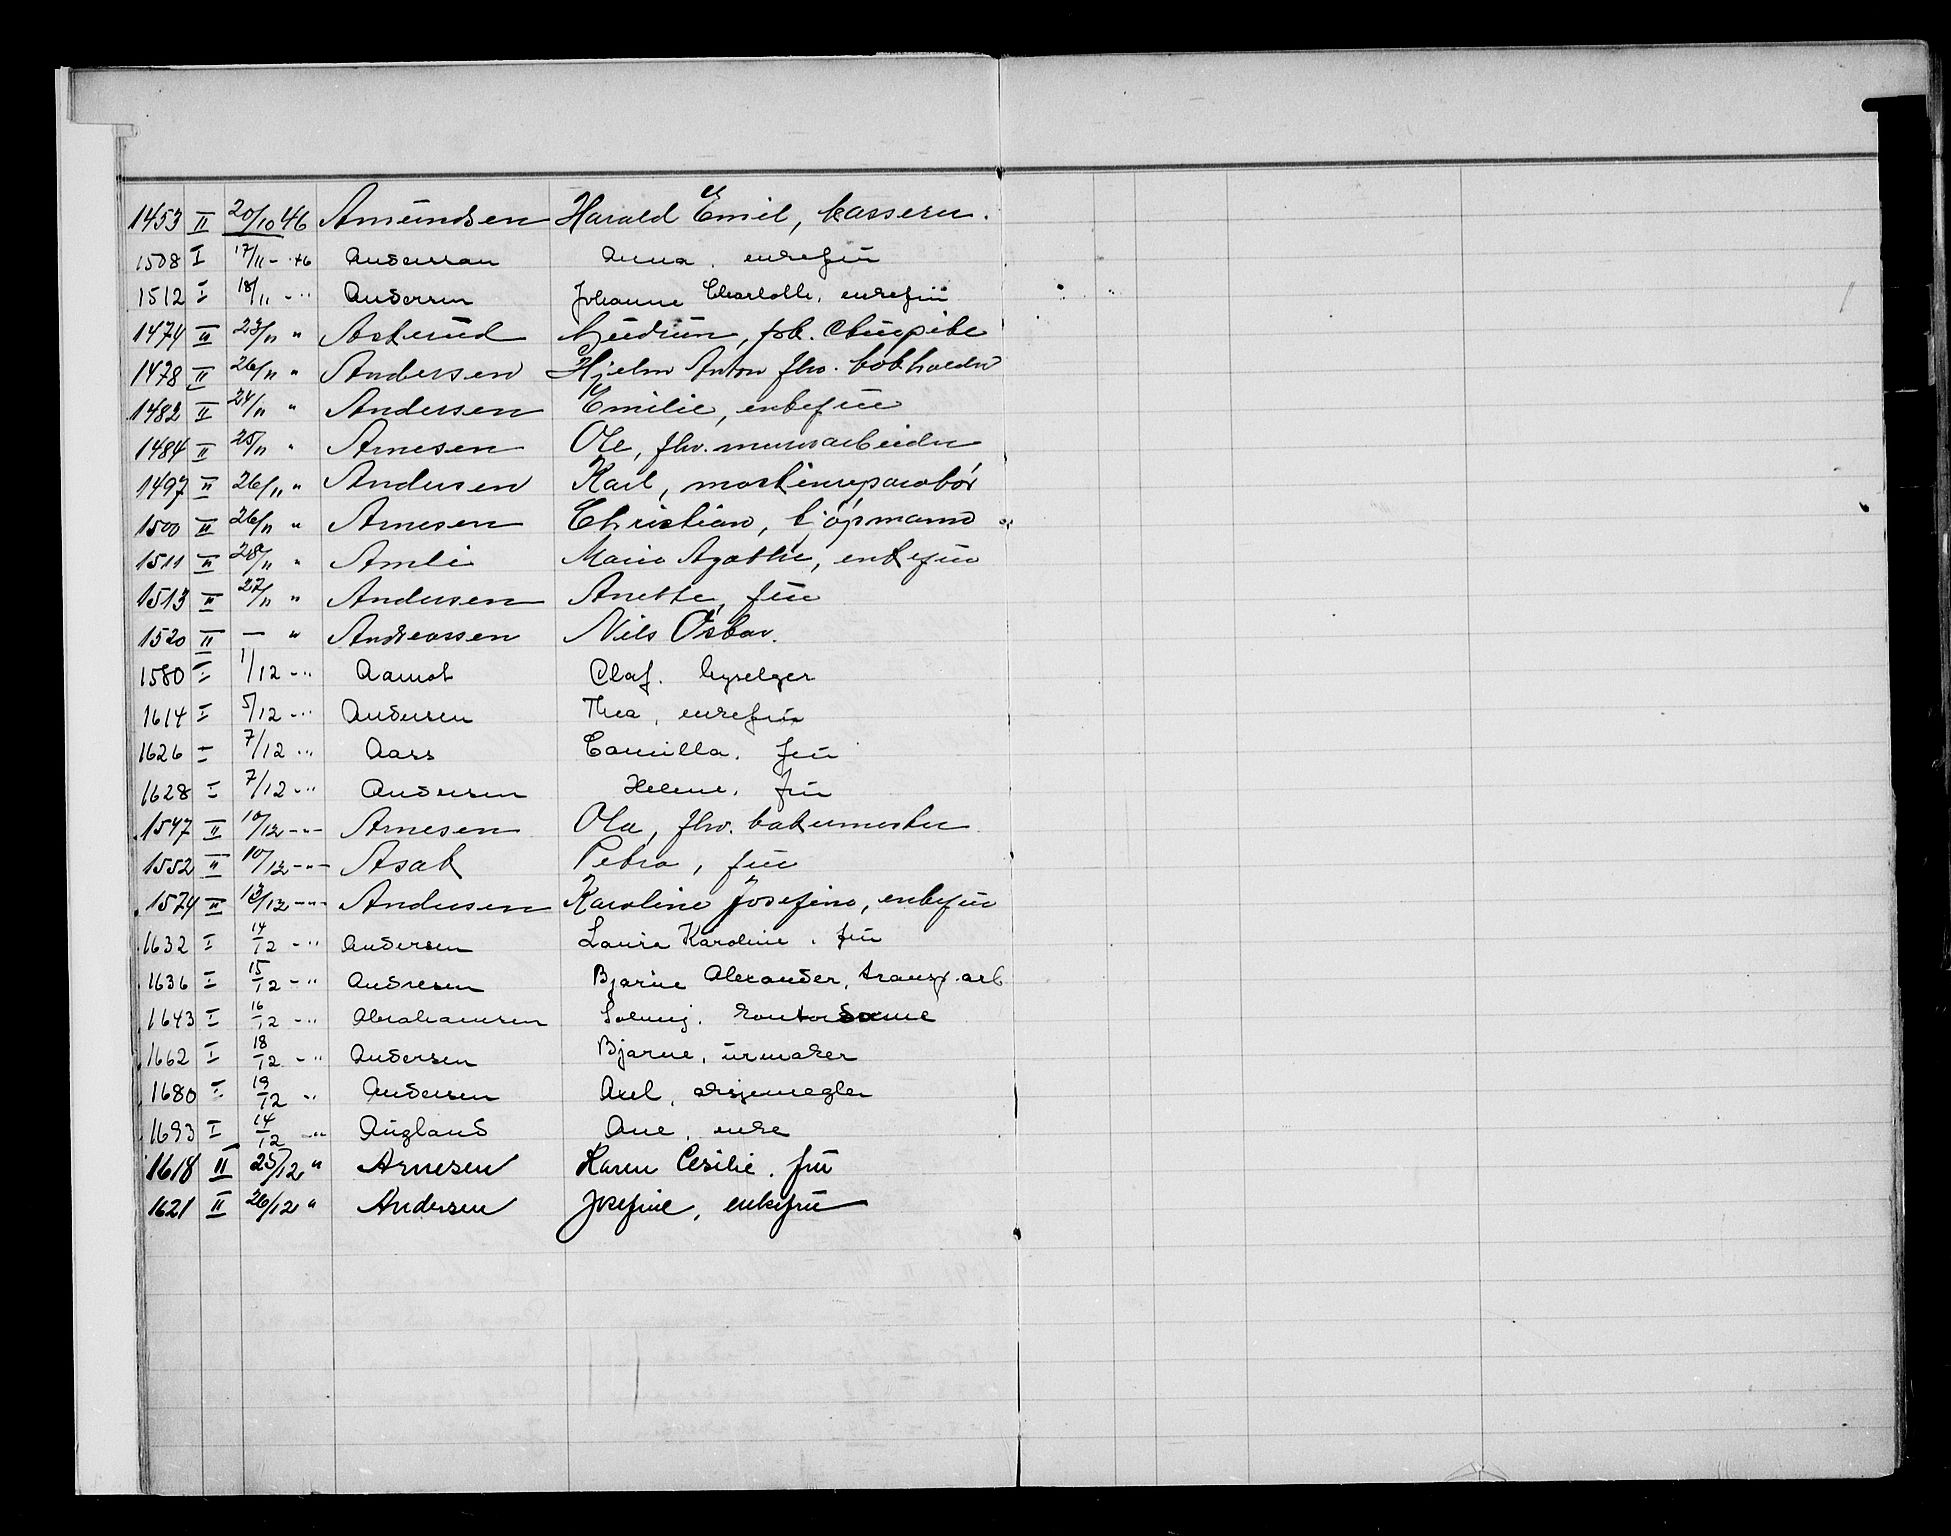 1453 II 20/10 46 Amundsen Harald Emil, kasserer.
1508 I 17/11 - 46 Anderssen Anna, enkefrü
1512 I 18/11 - " Andersen Johanne Charlotte, enkefrü
1474 II 23/11 " Askerüd Güdrün, frk.
1478 II 26/11 " Andersen Hjelm Anton fhv. bokholder
1482 II 24/11 " Andersen Emilie, enkefrü
1484 II 25/11 " Arnesen Ole, fhv. murarbeider
1497 II 26/11 " Andersen Karl, maskinreparatør
1500 II 26/11 " Arnesen Christian, kjøpmann
1511 II 28/11 " Amli Marie Agathe, enkefrü
1513 II 27/11 " Andersen Anette, frü
1520 II — " Andreassen Nils Oskar.
1580 I 1/12 - " Aamot Olaf.
1614 I 5/12 - " Andersen Thea, enkefrü
1626 I 7/12 - " Aass Camilla. frü
1628 I 7/12 - " Andersen Helene, frü
1547 II 10/12 - " - Arnesen Ola, fhv. bakermester
1552 II 10/12 - " - Asak Petra, frü
1574 II 13/12 - " - Andersen Karoline Josefine, enkefrü
1632 I 14/12 - " Andersen Laura Karoline, frü
1636 I 15/12 - " Andresen Bjarne Alexander, transp. arb
1643 I 16/12 - " Abrahamsen Solveig. kontordame
1662 I 18/12 - " Andersen Bjarne, ürmaker
1680 I 19/12 " Andersen Axel, aksjemegler
1693 I 14/12 - " Aügland Ane, enke
1618 II 25/12 " Arnesen Karen Cesilie. frü
1621 II 26/12 " Andersen Josefine, enkefrü